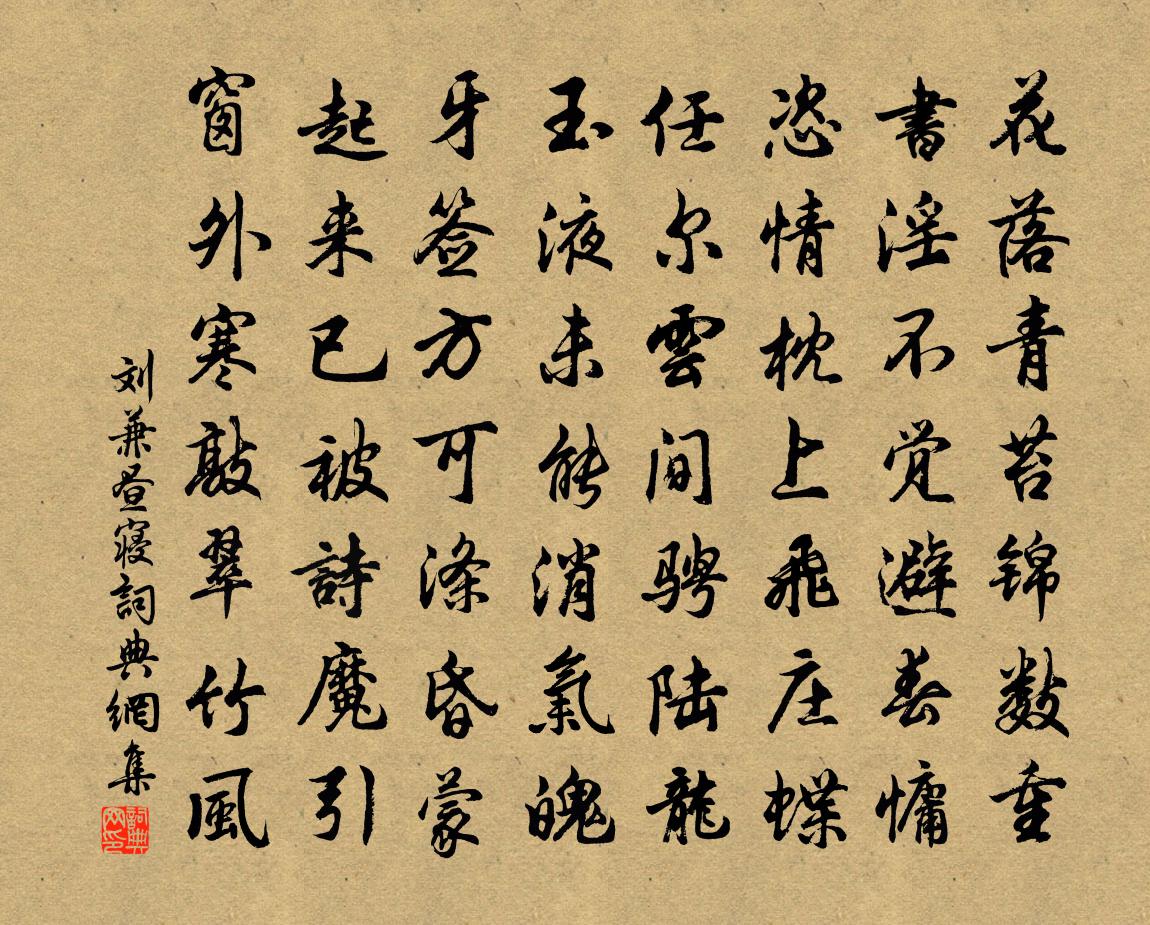 花落青苔锦数重
書淫不觉避春慵
恣情枕上飛庄蝶
任尔雲间骋陆龍
玉液未能消氣魄
牙签方可涤昏蒙
起来已被詩魔引
窗外寒敲翠竹風
刘兼昼寝詞典網集
詞典网印